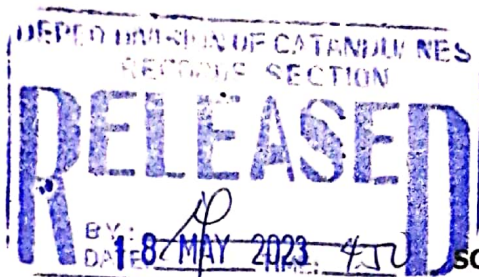 DEPED DIVISION OF CATANDUANES
RECORDS SECTION
RELEASED
BY:
DATE 18 MAY 2023 TIME: 450
SC